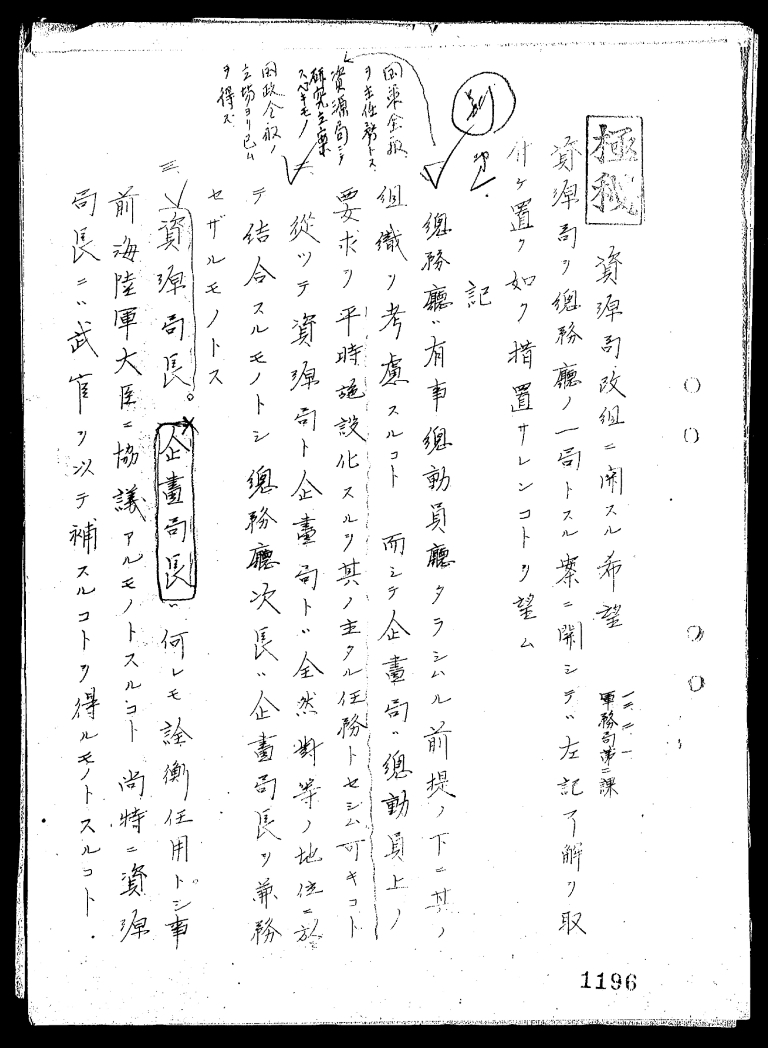 極秘
資源局改組ニ関スル希望
一二、二、一
軍務局第二課
資源局ヲ總務廳ノ一局トスル案ニ関シテハ左記了解ヲ取
付ケ置ク如ク措置サレンコトヲ望ム
記
一、總務廳ハ有事總動員廳タラシムル前提ノ下ニ其ノ
組織ヲ考慮スルコト 而シテ企畫局ハ總動員上ノ
要求ヲ平時施設化スルヲ其ノ主タル任務トセシム可キコト
二、從ツテ資源局ト企畫局トハ全然對等ノ地位ニ於
テ結合スルモノトシ總務廳次長ハ企畫局長ヲ兼務
セザルモノトス
三、資源局長。企畫局長ハ何レモ詮衡任用トシ事
前海陸軍大臣ニ協議アルモノトスルコト 尚特ニ資源
局長ニハ武官ヲ以テ補スルコトヲ得ルモノトスルコト.
国策全般
ヲ主任務トス
資源局ニテ
研究立案
スベキモノ
国政全般ノ
立場ヨリ已ム
ヲ得ズ
1196